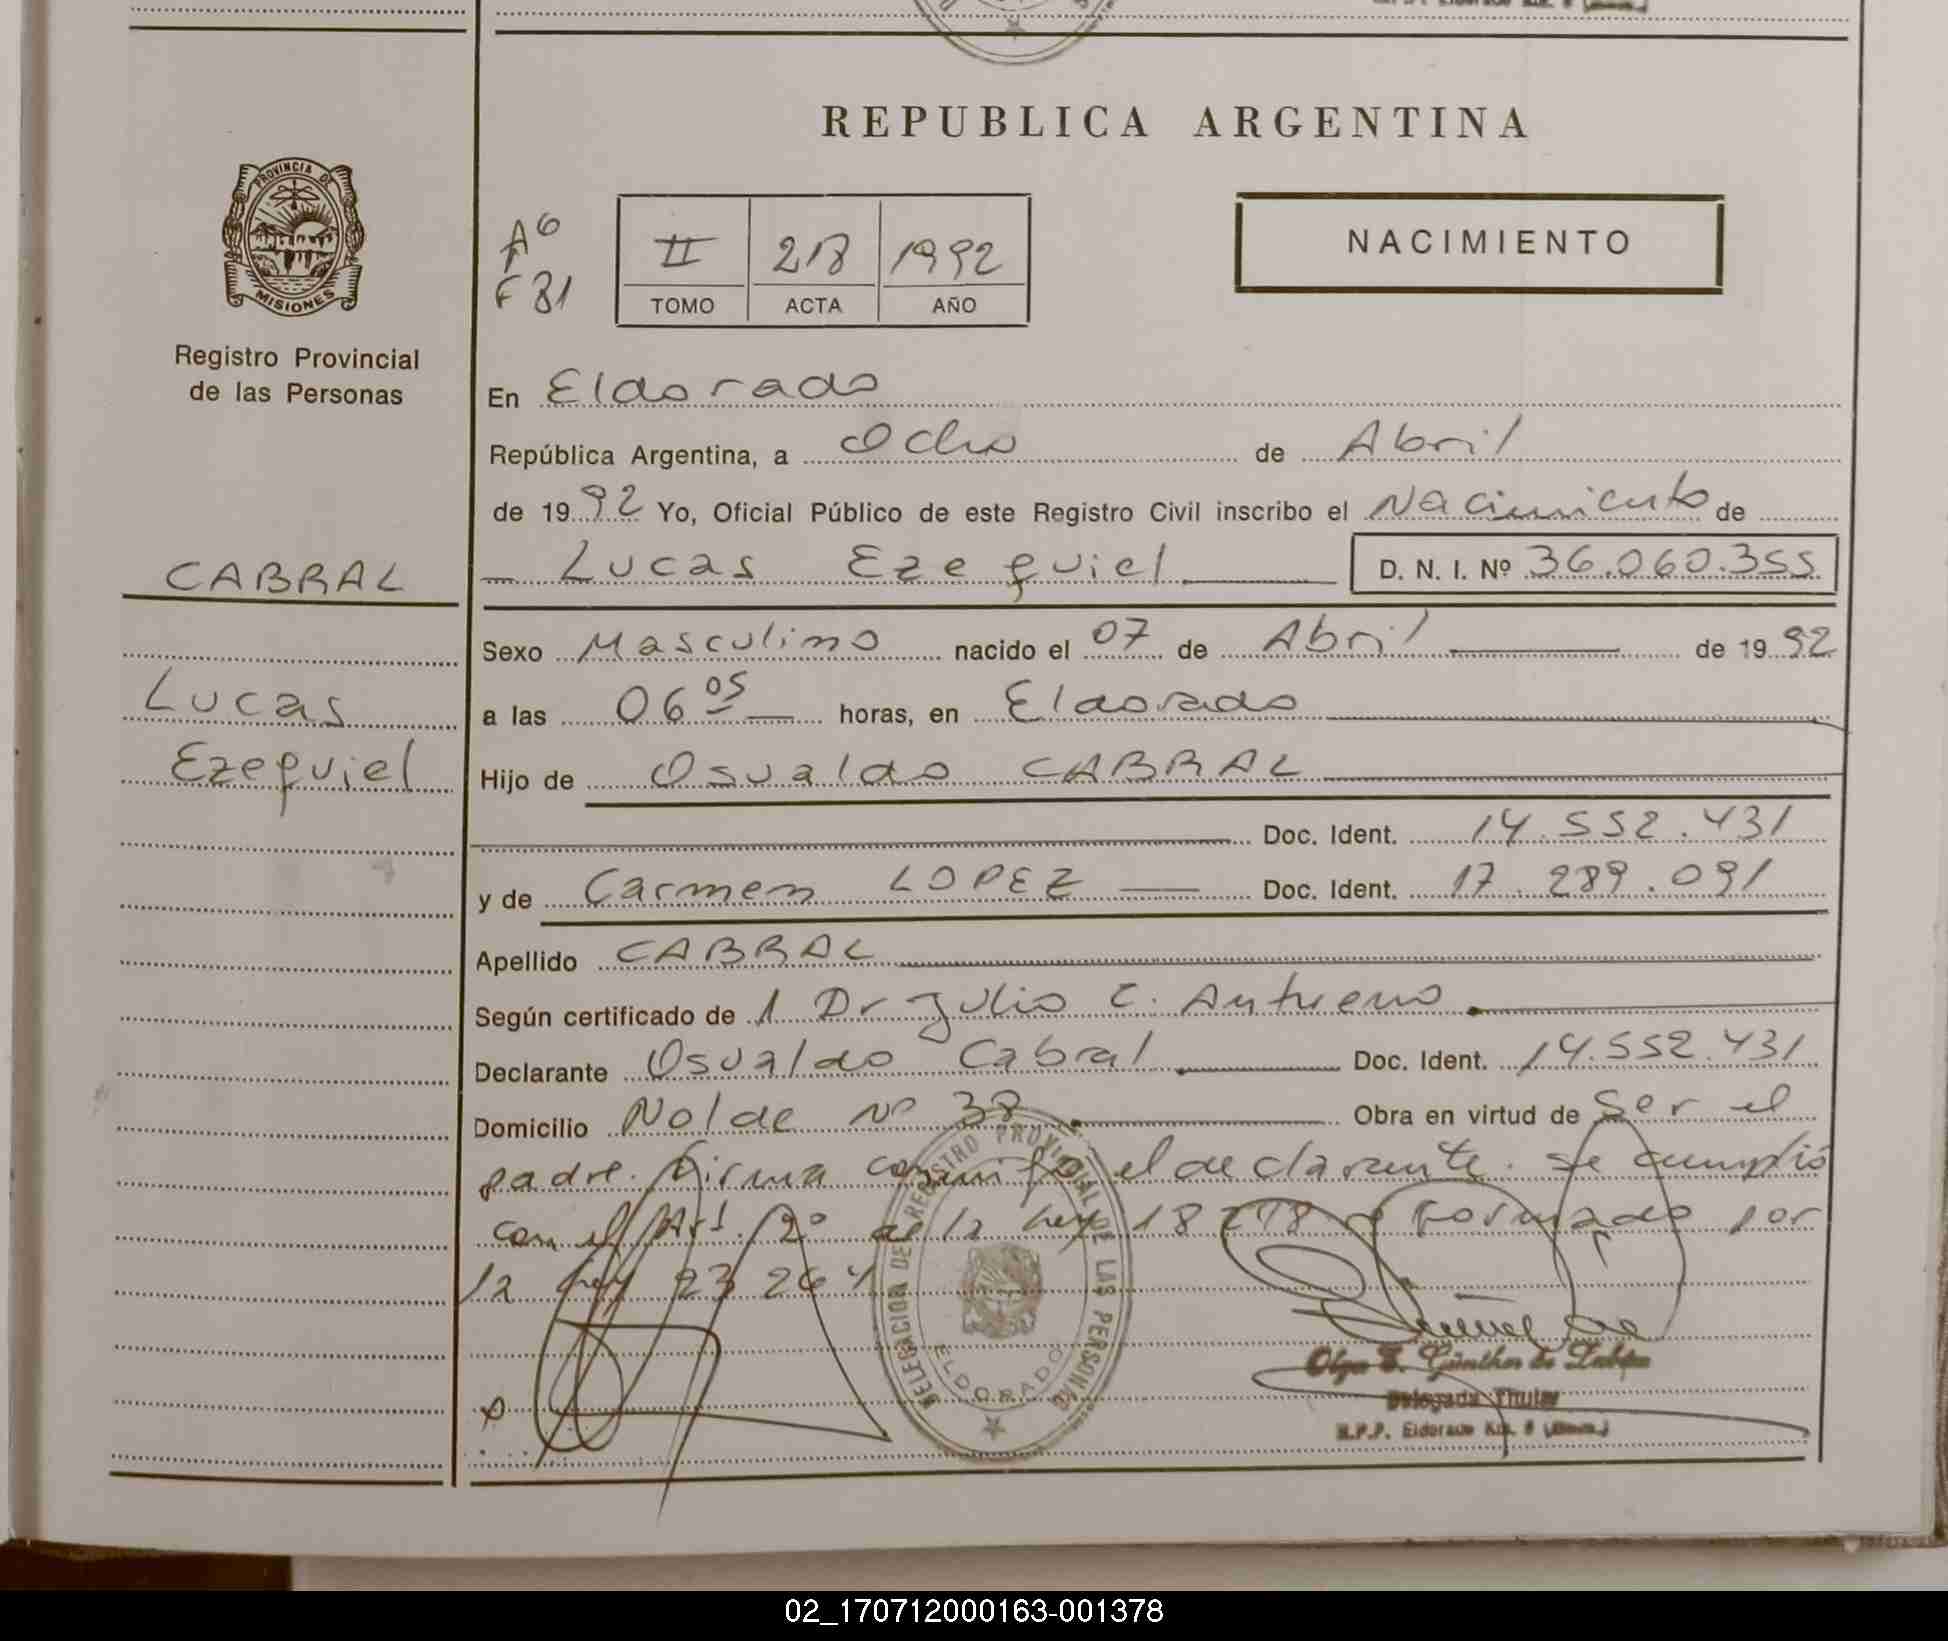 REPUBLICA ARGENTINA
PROVINCIA DE
MISIONES
Registro Provincial
de las Personas
A6
F 81
II 218 1992
TOMO ACTA AÑO
NACIMIENTO
En Eldorado
República Argentina, a Ocho de Abril
de 1992 Yo, Oficial Público de este Registro Civil inscribo el Nacimiento de
Lucas Ezequiel D. N. I. Nº 36.060.355
CABRAL
Lucas
Ezequiel
Sexo Masculino nacido el 07 de Abril de 1992
a las 06 05 horas, en Eldorado
Hijo de Osvaldo CABRAL
Doc. Ident. 14.552.431
y de Carmen LOPEZ Doc. Ident. 17.289.091
Apellido CABRAL
Según certificado de 1 Dr Julio C.
Declarante Osvaldo Cabral Doc. Ident. 14.552.431
Domicilio Nolde Nº 38 Obra en virtud de Ser el
padre. Firma conmigo el declarante. Se cumplió
con el Art. 2º de la Ley 18278 por
la Ley 23264
DELEGACION DE REGISTRO PROVINCIAL DE LAS PERSONAS
ELDORADO
Olga Günther de
Delegada Titular
R.P.P. Eldorado Km. 8
02_170712000163-001378